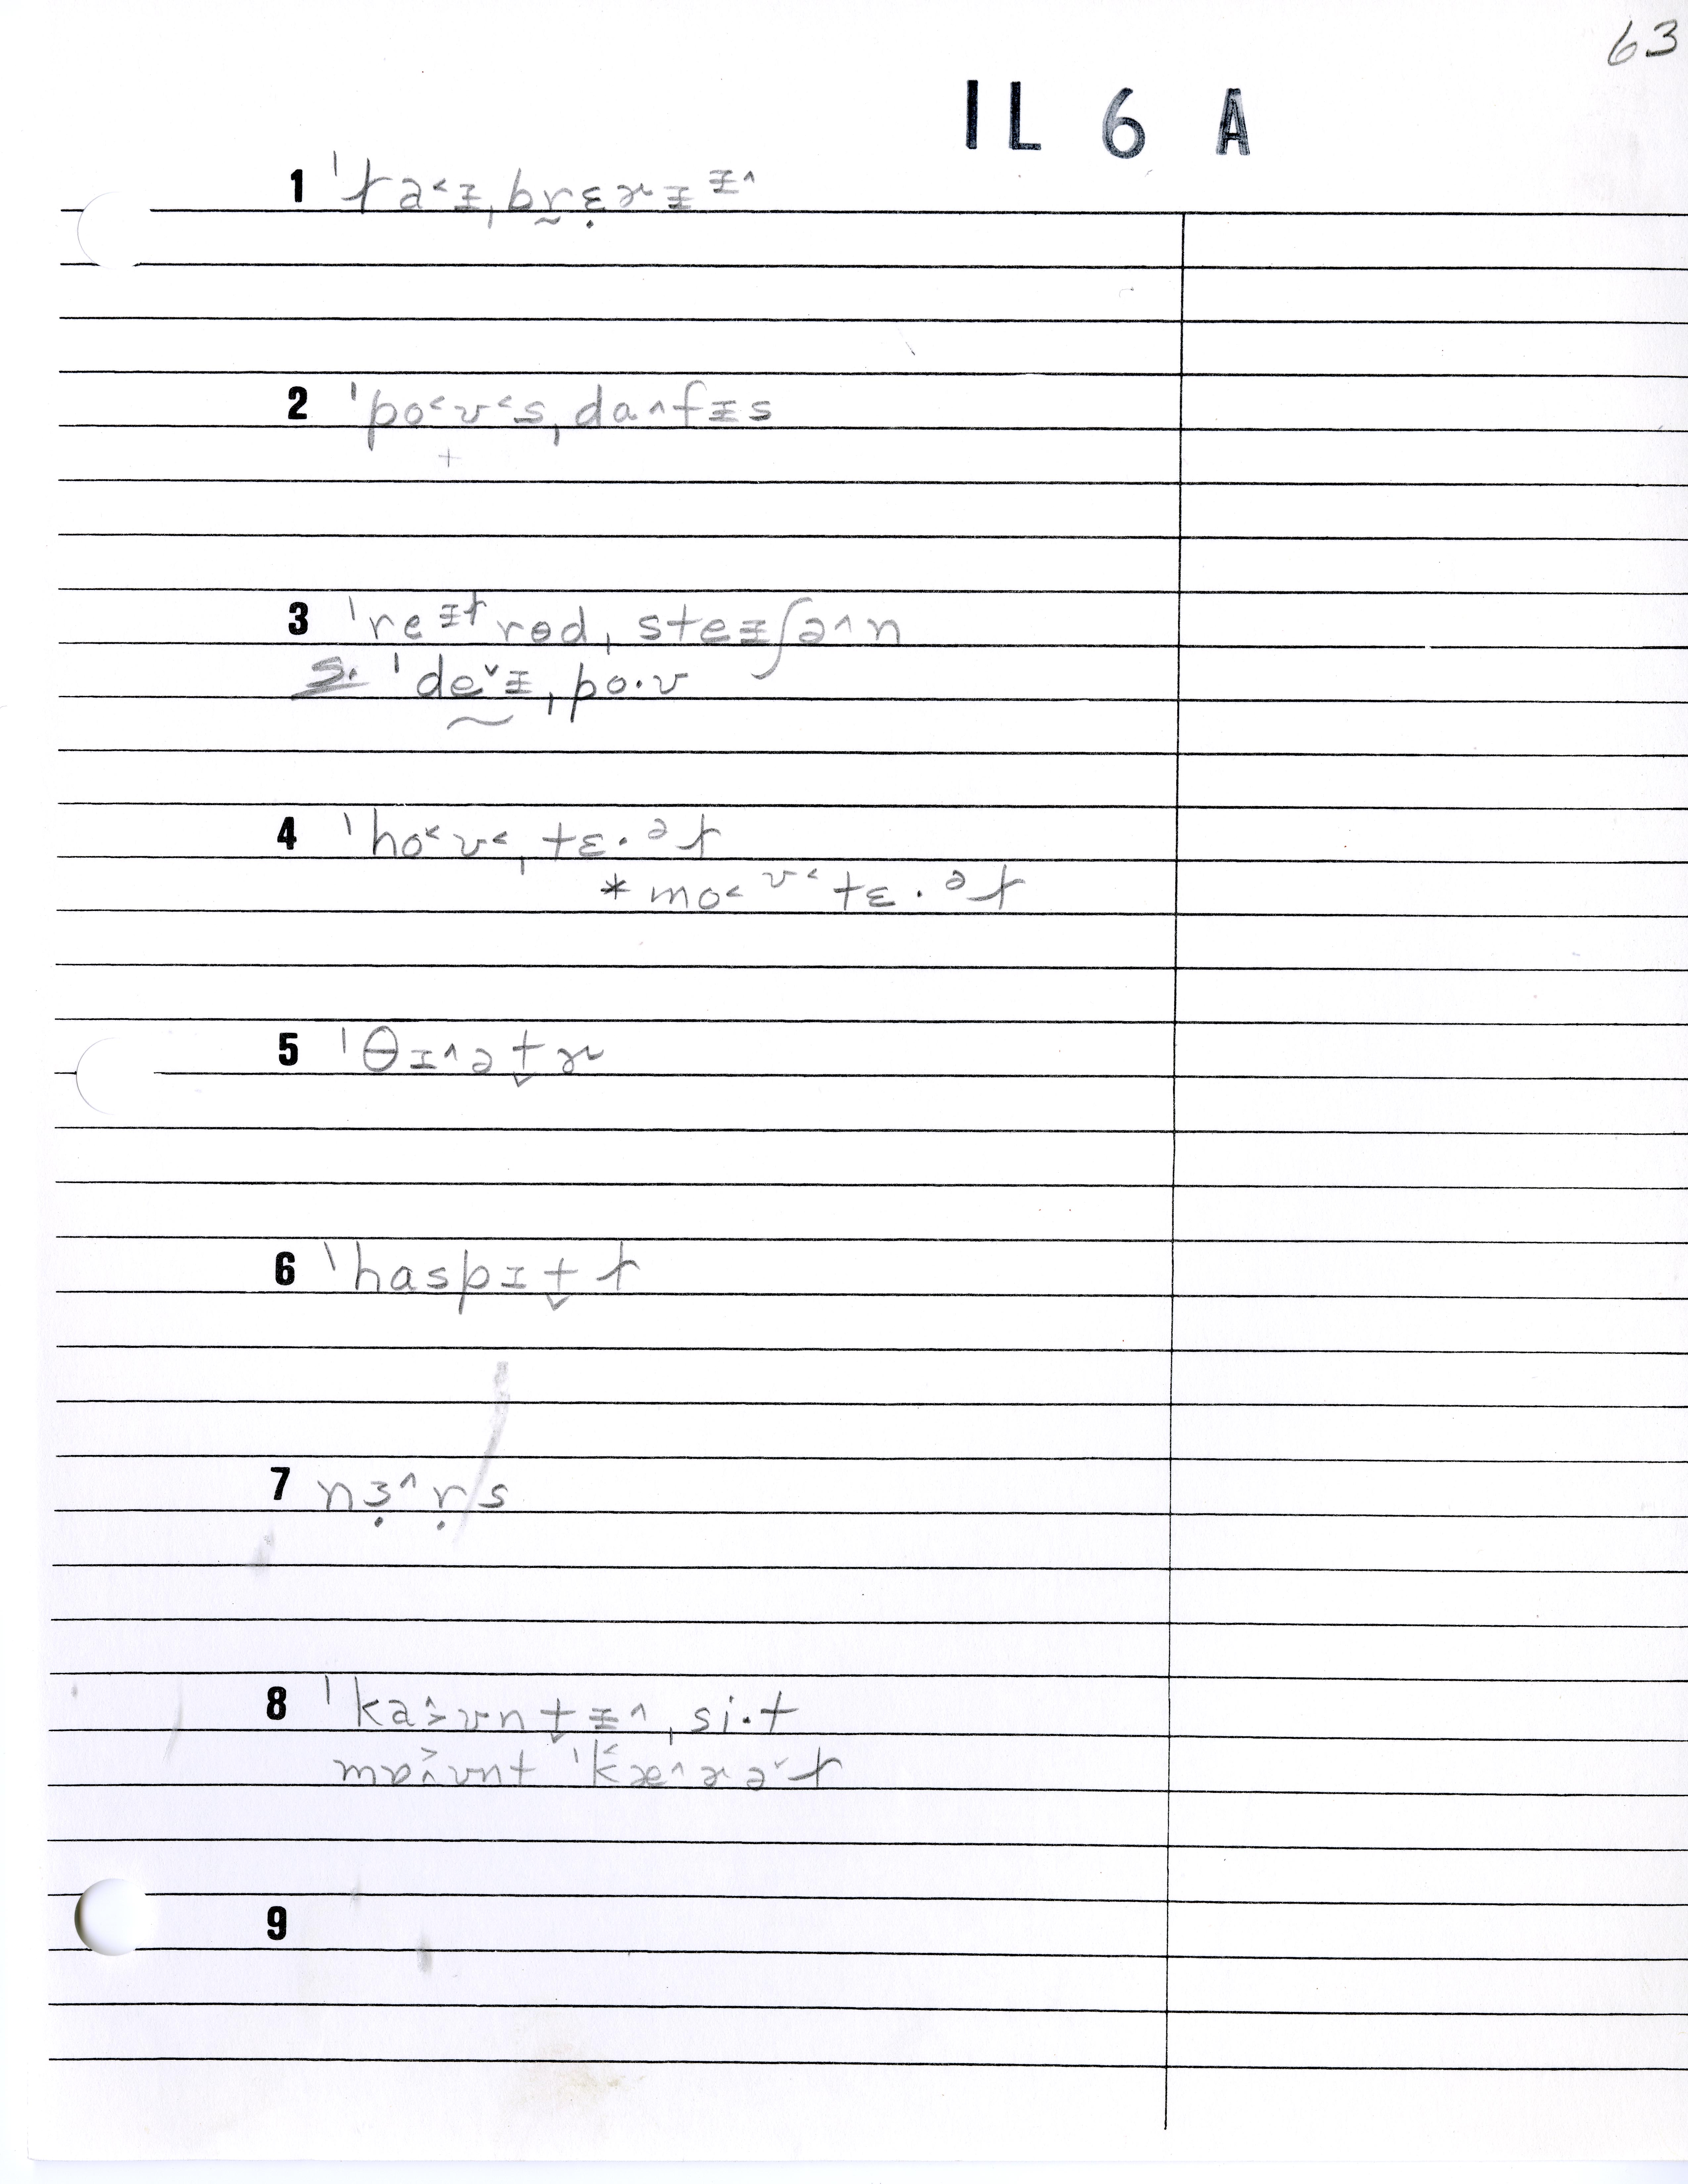 63
IL 6 A
1 ˈɫa˂ɪ̵ˌbr̰ɛ̣ɚɪ̵ɪ̵˄
2 ˈpo˂ʊ˂sˌda˄fɪ̵s
+
3 ˈreɪ̵ɫrodˌsteɪ̵ʃə˄n
S. ˈdḛ˅ɪ̵ˌpo·ʊ
4 ˈho˂ʊ˂ˌtɛ·əɫ
*mo˂ʊ˂tɛ·əɫ
5 ˈθɪ˄ət̬ɚ
6 ˈhaspɪt̬ɫ
7 nɜ̣˄ṛs
8 ˈka˄˃ʊnt̬ɪ̵˄ˌsi·t
mɒ˄˃ʊnt ˈk˂æ˄ɚə˅ɫ
9